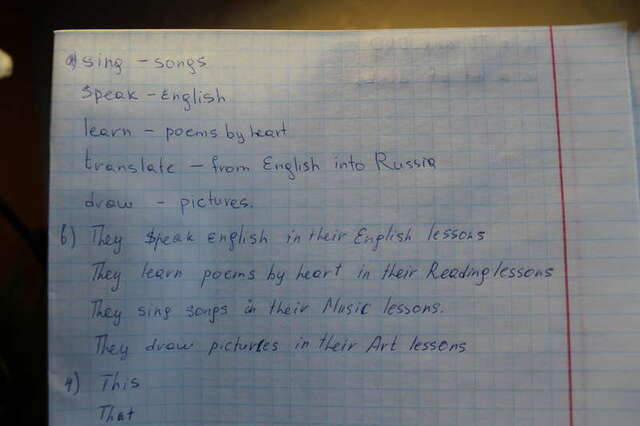 a) sing - songs
speak - English
learn - poems by heart
translate - from English into Russia
draw - pictures.
b) They speak English in their English lessons
They learn poems by heart in their Reading lessons
They sing songs in their Music lessons.
They draw pictures in their Art lessons
4) This
That